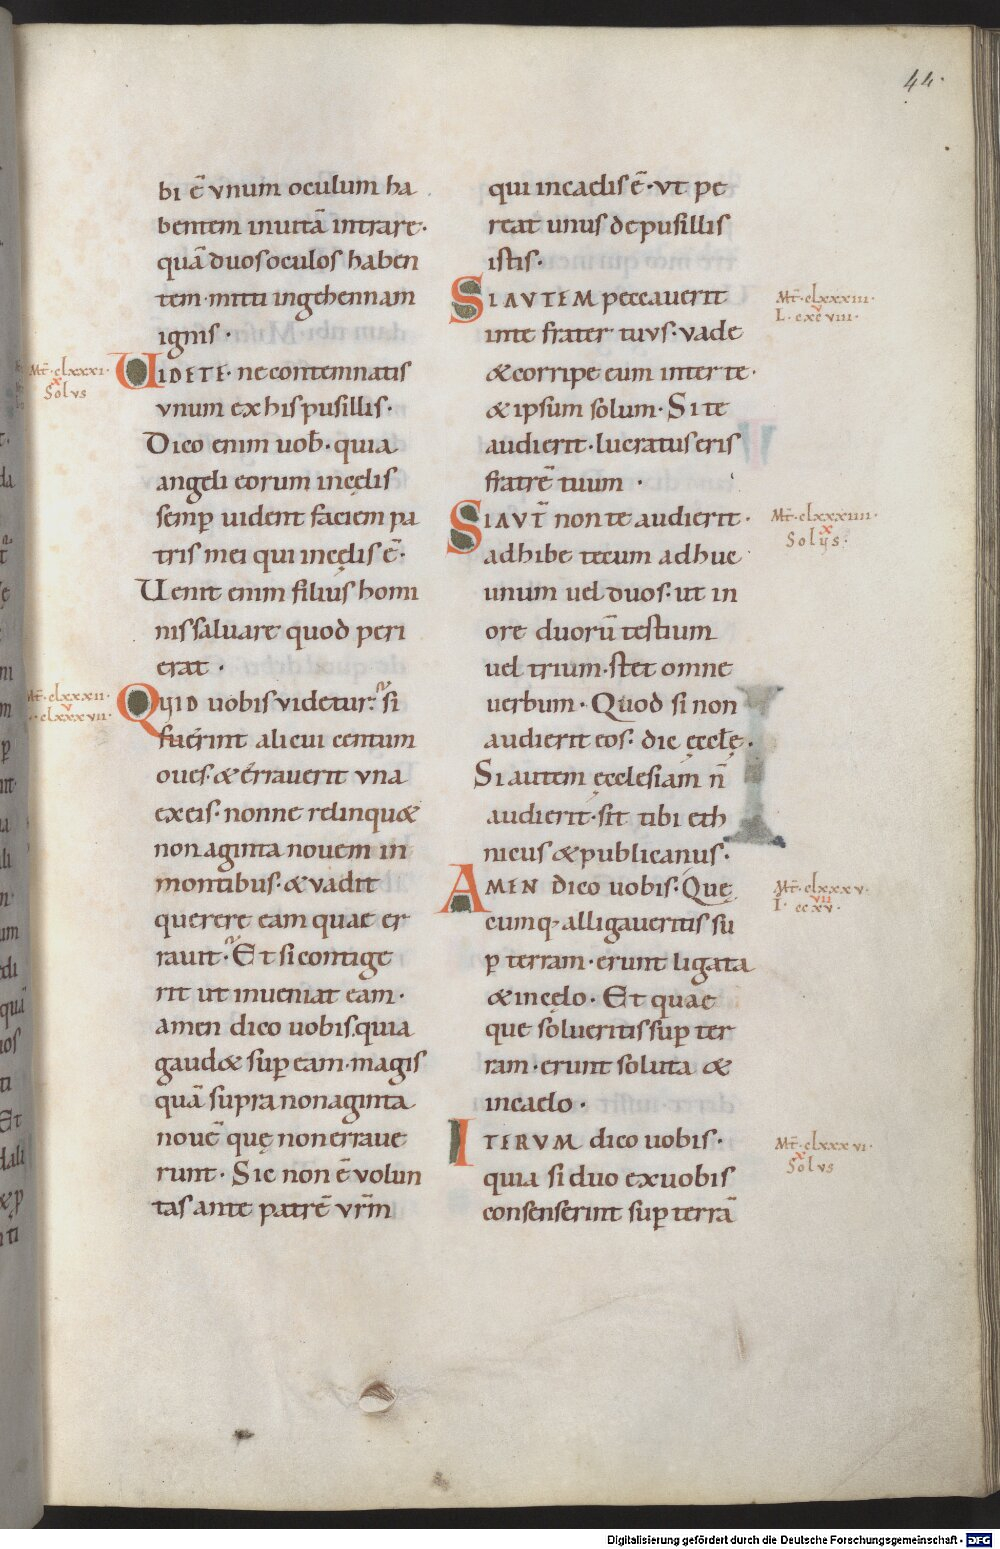 44.
bi ē vnum oculum ha
bentem inuitā intrare·
quā duos oculos haben
tem· mitti ingehennam
ignis·
Mt̄·clxxxi·
x
Solvs
UIDETE· ne contemnatis
vnum ex his pusillis·
Dico enim uob̄· quia
angeli eorum incęlis
semꝑ uident faciem pa
tris mei qui incęlis ē·
Uenit enim filius homi
nis saluare quod peri
erat·
Mt̄·clxxxii·
v
clxxxvii·
QUID uobis videtur· si
fuerint alicui centum
oues· & erraverit vna
ex eis· nonne relinqu&
nonaginta nouem in
montibus· & vadit
querere eam quae er
rauit· Et si contige
rit ut inueniat eam·
amen dico uobis· quia
gaud& suꝑ eam· magis
quā supra nonaginta
nouē quę non erraue
runt· Sic non ē volun
tas ante patrē vr̄m
qui incaelis ē· vt pe
reat unus de pusillis
istis·
Mt̄·clxxxiii·
v
L·cxcviii·
SI AVTEM peccauerit
inte frater tuus· vade
& corripe eum inter te·
& ipsum solum· Si te
audierit· lucratus eris
fratrē tuum·
Mt̄·clxxxiiii·
x
Solvs·
SI AVT̄ non te audierit·
adhibe tecum adhuc
unum uel duos· ut in
ore duorū testium
uel trium· stet omne
uerbum· Quod si non
audierit eos· dic ęccłę·
Si autem ęcclesiam n̄
audierit· sit tibi eth
nicus & publicanus·
Mt̄·clxxxv·
vii
I·ccxv·
AMEN dico uobis· Quę
cumq; alligaueritis su
ꝑ terram· erunt ligata
& incęlo· Et quae
que solueritis suꝑ ter
ram· erunt soluta &
incaelo·
Mt̄·clxxxvi·
x
Solvs
ITERVM dico uobis·
quia si duo ex uobis
consenserint suꝑ terrā
I
Digitalisierung gefördert durch die Deutsche Forschungsgemeinschaft - DFG